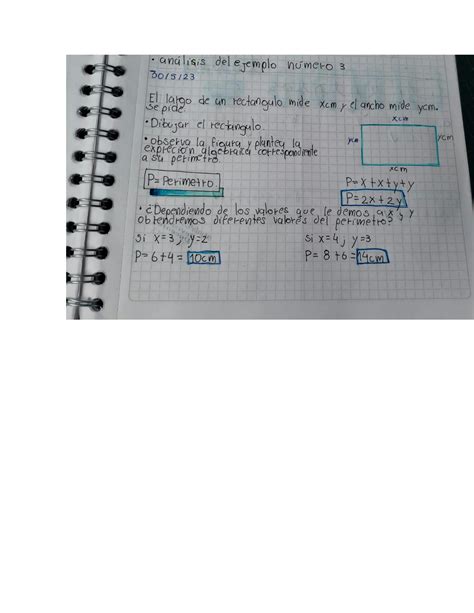 • análisis del ejemplo número 3
30/5/23
El largo de un rectangulo mide xcm y el ancho mide ycm.
se pide.
• Dibujar el rectangulo.
xcm
ycm
ycm
xcm
• observa la figura y plantea la
expreción algebraica correspondiente
a su perímetro.
P= Perímetro
P= x+x+y+y
P= 2x + 2y
• ¿Dependiendo de los valores que le demos a x y y
obtendremos diferentes valores del perímetro?
Si x=3 ; y=2
P= 6+4 = 10cm
Si x=4 ; y=3
P= 8+6 = 14cm